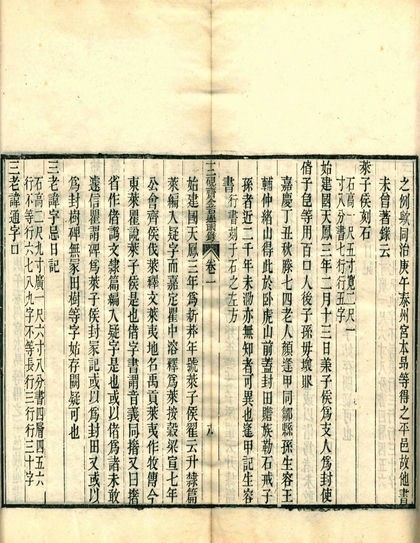 之例歟同治庚午泰州宮本昂等得之平邑故他書
未曾著錄云
萊子侯刻石
石高一尺五寸寬二尺一
寸八分書七行行五字
始建國天鳳三年二月十三日萊子侯為支人為封使
偖子用百口人後子孫毋壞敗
嘉慶丁丑秋滕七四老人顏逢甲同鄒縣孫生容王
輔仲緒山得此於臥虎山前蓋封田贍族勒石戒子
孫者近二千年未泐亦無知者可異也逢甲記生容
書 行書刻于石之左方
十二硯齋金石過眼錄 卷一 九
始建國天鳳三年為新莽年號萊子侯翟云升隸篇
萊編入疑字而嘉定瞿中溶釋為萊按穀梁宣七年
公會齊侯伐萊釋文萊夷地名禹貢萊夷作牧傳今
東萊瞿說萊子侯是也偖字書謂音義同撦又曰揩
省作偖譌文隸篇編入疑字是也或以偖為諸未敢
遽信瞿謂碑為萊子侯封冢記或以為封田又或以
為封樹碑無冢田樹等字始存闕疑可也
三老諱字忌日記
石高二尺九寸廣一尺六寸八分書四層四五六
行不等字六七八九字不等長行三行行三十字
三老諱通字口